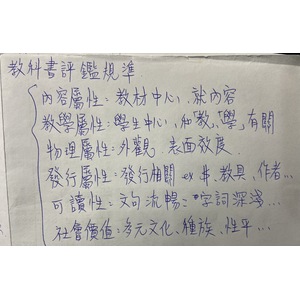 教科書評鑑規準
內容屬性：教材中心、就內容
教學屬性：學生中心、和「教」、「學」有關
物理屬性：外觀、表面效度
發行屬性：發行相關 ex #、教具、作者...
可讀性：文句流暢、字詞深淺...
社會價值：多元文化、種族、性平...